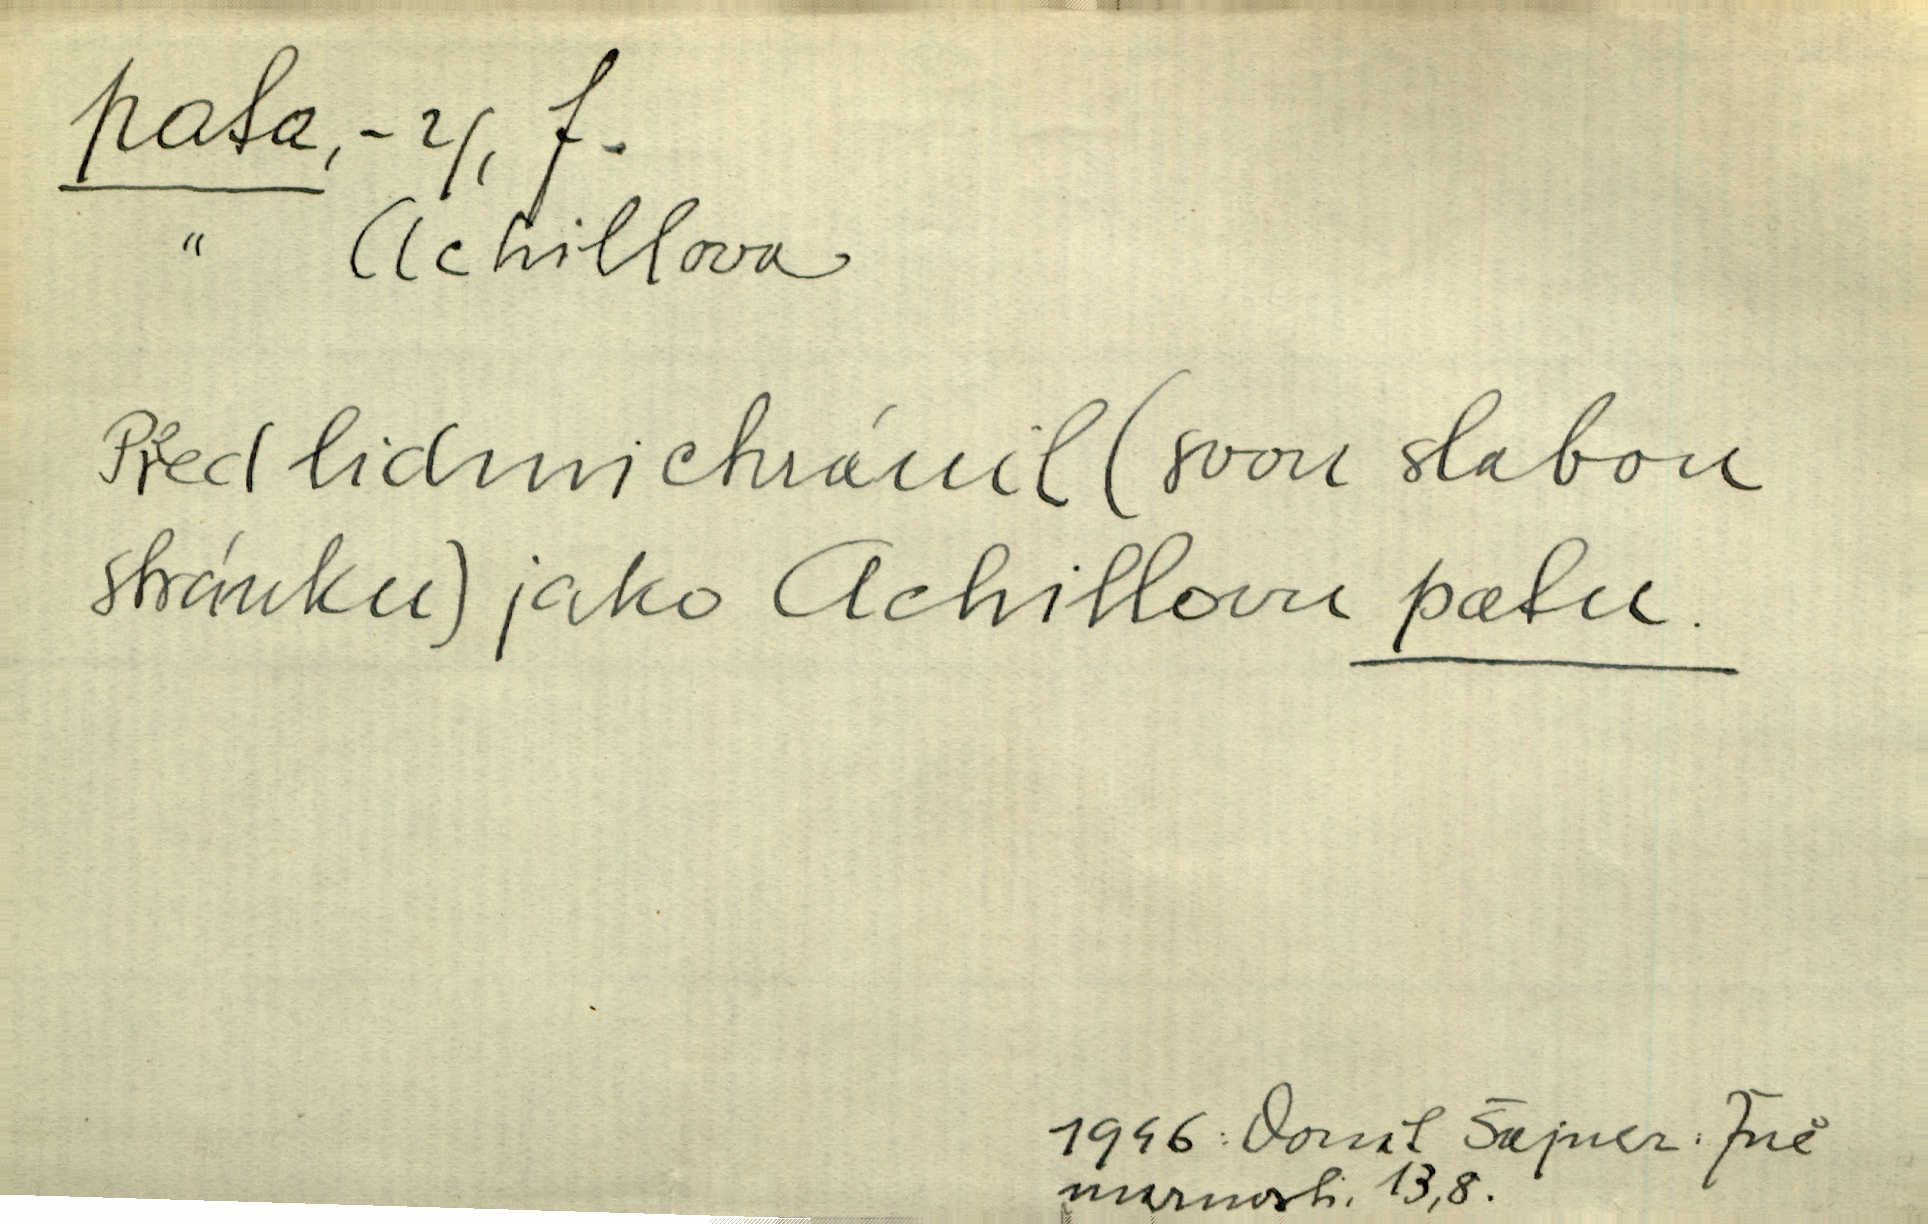 pata, -y, f.
" Achillova
Před lidmi chránil (svou slabou
stránku) jako Achillovu patu.
1946: Donát Šajner: Žně
marnosti. 13,8.